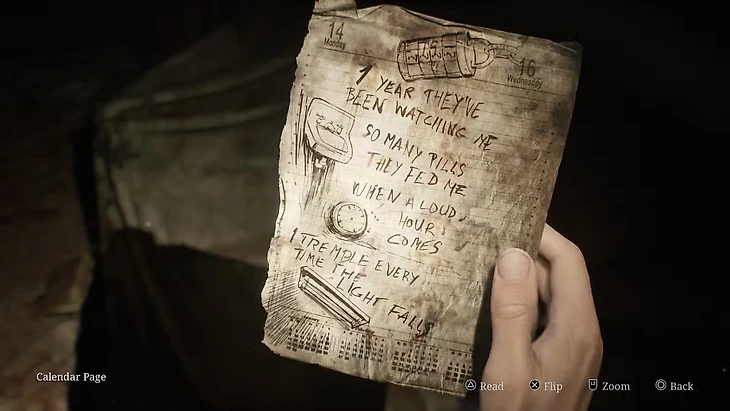 14
Monday
16
Wednesday
1 YEAR THEY'VE
BEEN WATCHING ME
SO MANY PILLS
THEY FED ME
WHEN A LOUD
HOUR
COMES
I TREMBLE EVERY
TIME THE
LIGHT FALLS
Calendar Page
Read
Flip
Zoom
Back